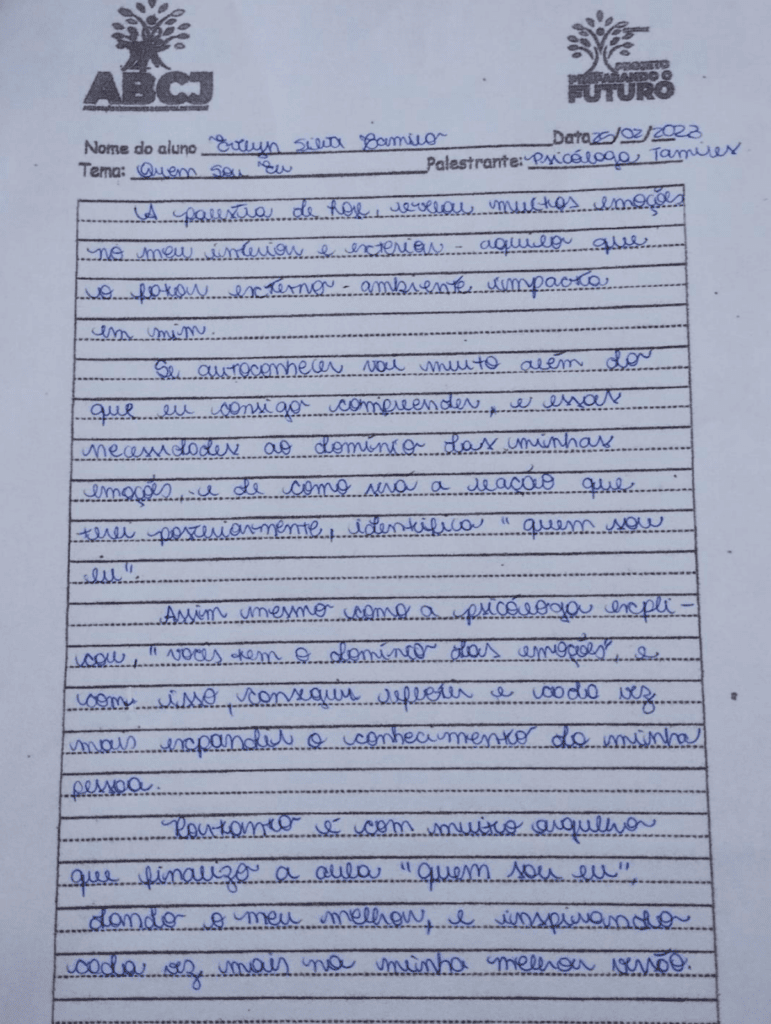 ABCJ
PROJETO
PREPARANDO O
FUTURO
Nome do aluno Evelyn Silva Camilo
Data 25/02/2023
Tema: Quem sou Eu
Palestrante: Psicóloga Tamires
A palestra de hoje, revelou muitas emoções
no meu interior e exterior - aquilo que
o fator externo - ambiente impacta
em mim.
Se autoconhecer vai muito além do
que eu consigo compreender, e essas
necessidades ao domínio das minhas
emoções, e de como será a reação que
terei posteriormente, identifica "quem sou
eu".
Assim mesmo como a psicóloga expli-
cou, "vocês tem o domínio das emoções", e
com isso, consegui refletir e cada vez
mais expandir o conhecimento da minha
pessoa.
Portanto é com muito orgulho
que finalizo a aula "quem sou eu",
dando o meu melhor, e inspirando
cada vez mais na minha melhor versão.